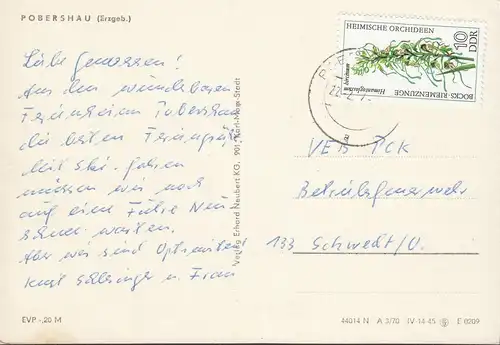 POBERSHAU (Erzgeb.)
Liebe Genossen!
Aus dem wunderbaren
Ferienheim Pobershau
die besten Feriengrüße
Mit Ski-fahren
müssen wir noch
auf eine Fuhre Neu
schnee warten.
Aber wir sind Optimisten
Kurt u. Frau
EVP -,20 M
Verlag Erhard Neubert KG, 901 Karl-Marx-Stadt
HEIMISCHE ORCHIDEEN
10
DDR
BOCKS-RIEMENZUNGE
Himantoglossum hircinum
a
VEB PCK
Betriebsfeuerwehr
133 Schwedt/O.
44014 N A 3/70 IV-14-45 E 0209